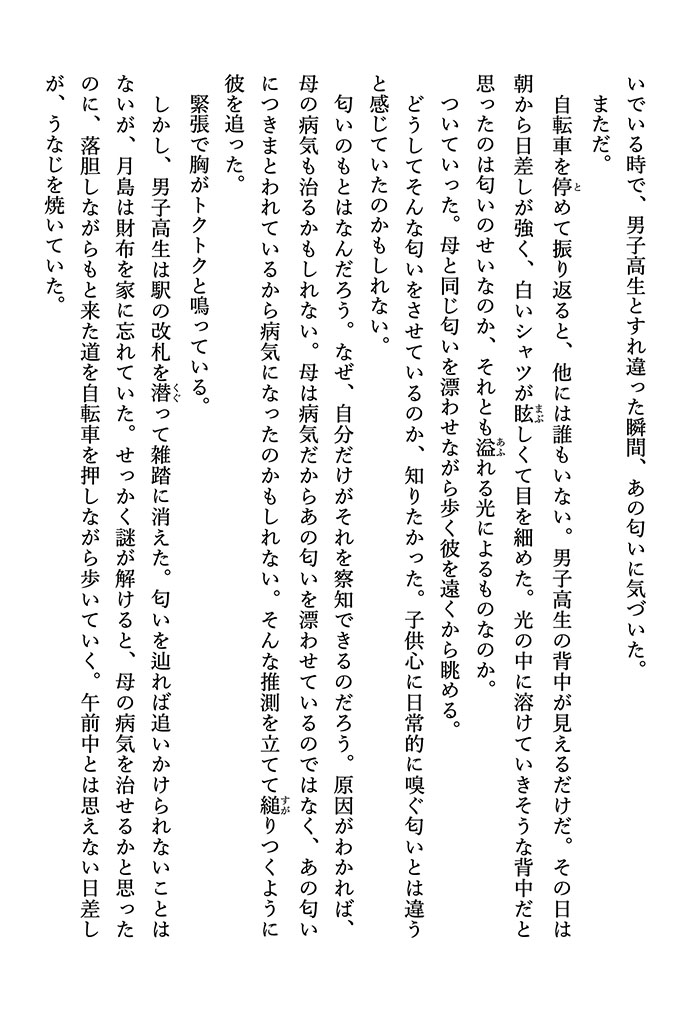 いでいる時で、男子高生とすれ違った瞬間、あの匂いに気づいた。
まただ。
自転車を停めて振り返ると、他には誰もいない。男子高生の背中が見えるだけだ。その日は
朝から日差しが強く、白いシャツが眩しくて目を細めた。光の中に溶けていきそうな背中だと
思ったのは匂いのせいなのか、それとも溢れる光によるものなのか。
ついていった。母と同じ匂いを漂わせながら歩く彼を遠くから眺める。
どうしてそんな匂いをさせているのか、知りたかった。子供心に日常的に嗅ぐ匂いとは違う
と感じていたのかもしれない。
匂いのもとはなんだろう。なぜ、自分だけがそれを察知できるのだろう。原因がわかれば、
母の病気も治るかもしれない。母は病気だからあの匂いを漂わせているのではなく、あの匂い
につきまとわれているから病気になったのかもしれない。そんな推測を立てて縋りつくように
彼を追った。
緊張で胸がトクトクと鳴っている。
しかし、男子高生は駅の改札を潜って雑踏に消えた。匂いを辿れば追いかけられないことは
ないが、月島は財布を家に忘れていた。せっかく謎が解けると、母の病気を治せるかと思った
のに、落胆しながらもと来た道を自転車を押しながら歩いていく。午前中とは思えない日差し
が、うなじを焼いていた。